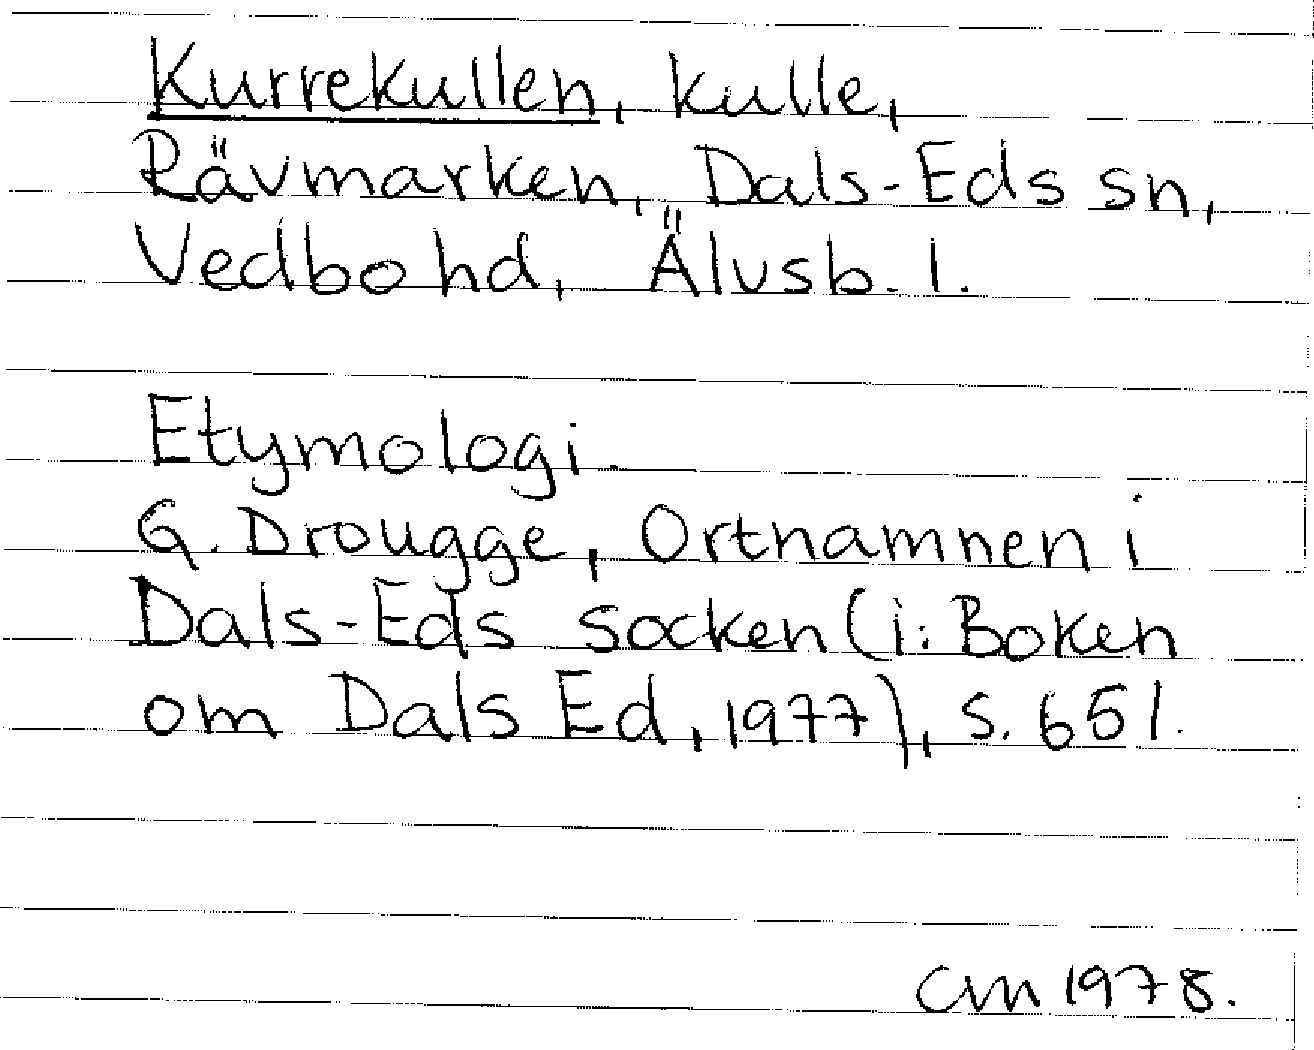 Kurrekullen, kulle,
Rävmarken, Dals-Eds sn,
Vedbo hd, Älvsb. l.
Etymologi.
G. Drougge, Ortnamnen i
Dals-Eds socken (i: Boken
om Dals Ed, 1977), s. 651.
CM 1978.